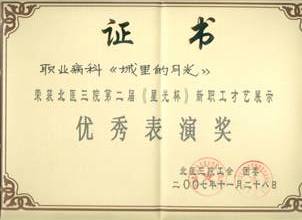 证 书
职业病科《城里的月光》
荣获北医三院第二届《星光杯》新职工才艺展示
优秀表演奖
北医三院工会 团委
二〇〇七年十一月二十八日